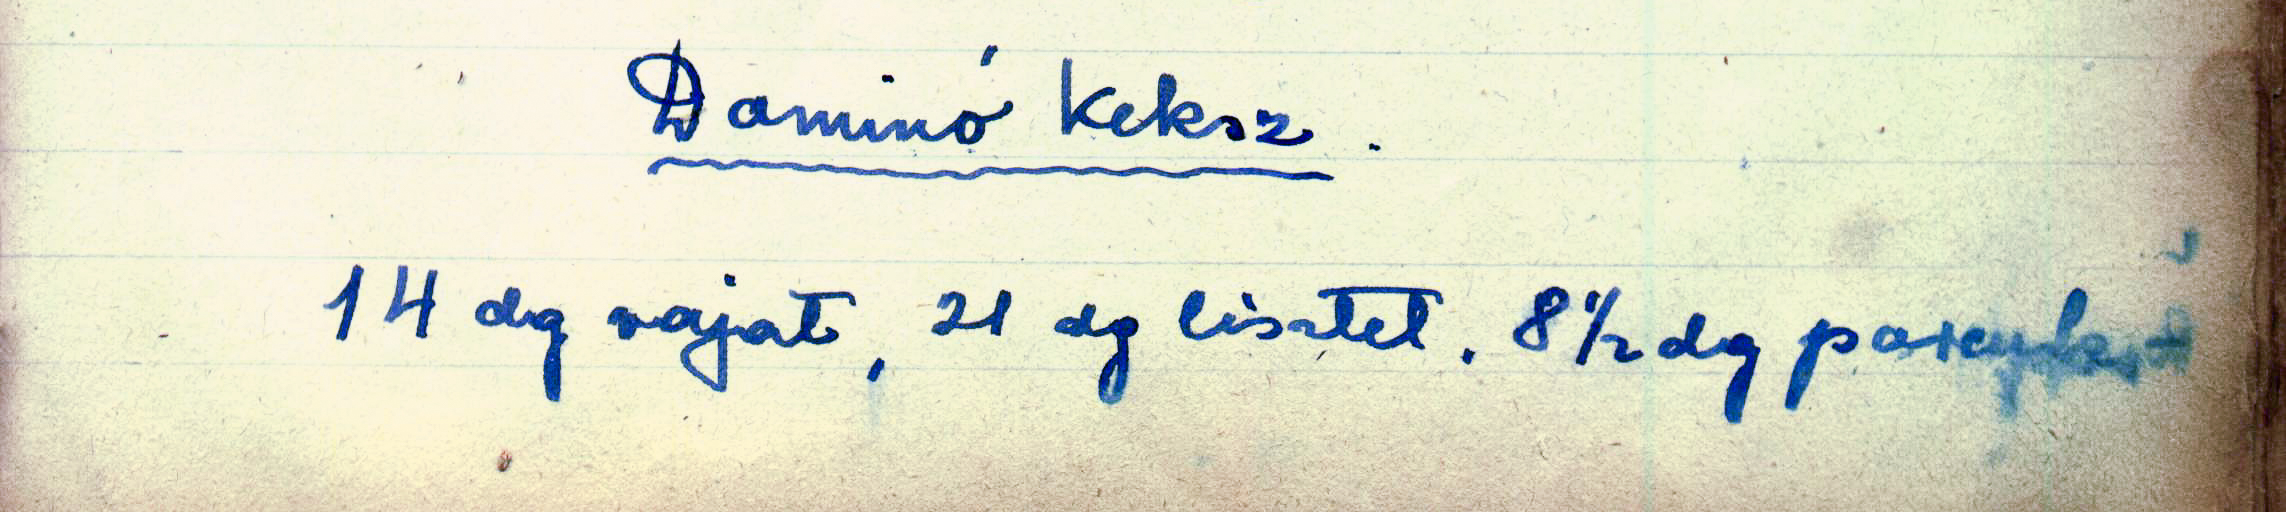 Dominó Keksz.
14 dg vajat, 21 dg lisztet. 8 ½ dg porcukrot